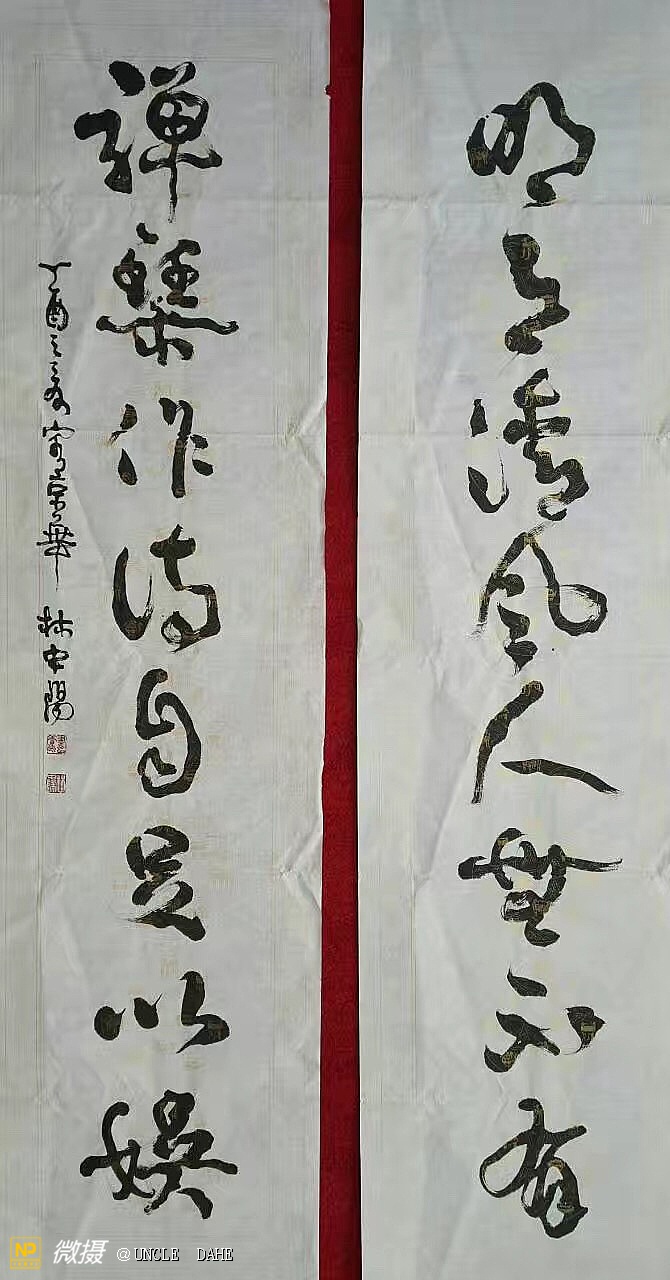 明月清風人無不有
彈琴作詩自足以娛
丁酉之夏寫於京華 林中陽
NP 微摄 @UNCLE DAHE